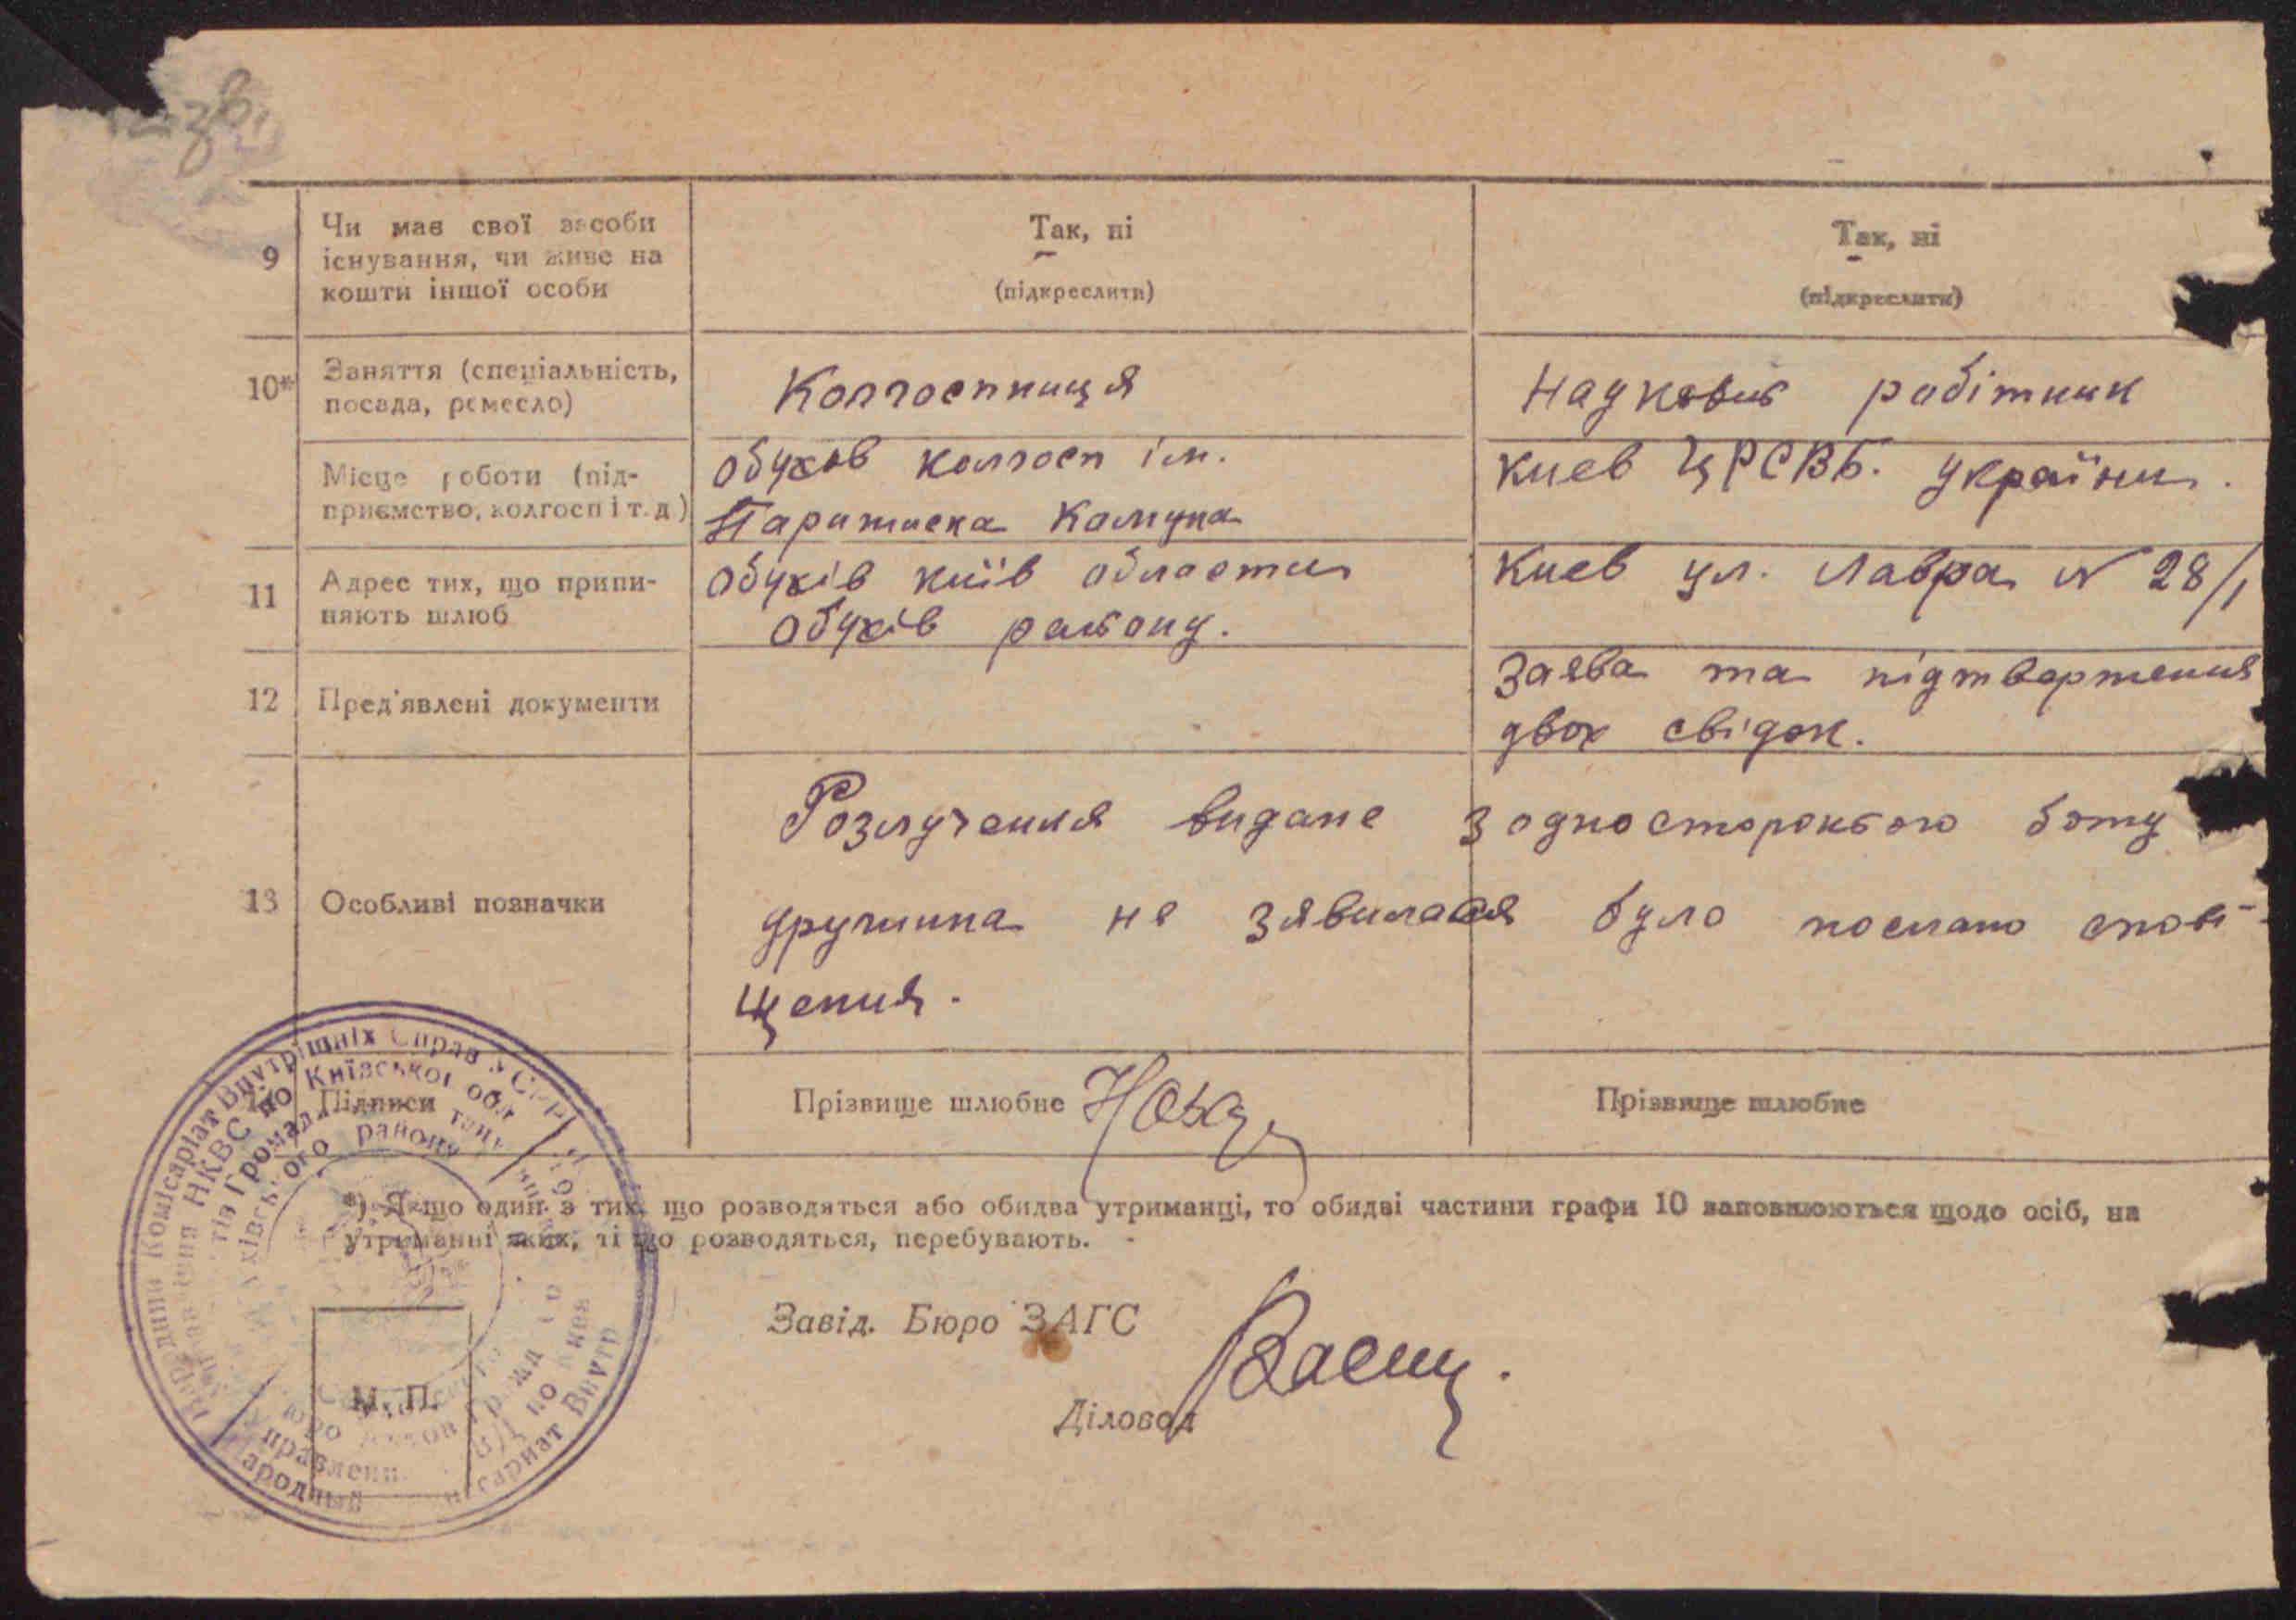 9
Чи має свої засоби
існування, чи живе на
кошти іншої особи
Так, ні
(підкреслити)
Так, ні
(підкреслити)
10*
Заняття (спеціальність,
посада, ремесло)
Колгоспниця
Науковий робітник
Місце роботи (під-
приємство, колгосп і т. д.)
Обухов колгосп ім.
Паризька Комуна
Киев ЦРСВБ. України.
11
Адрес тих, що припи-
няють шлюб
Обухів київ области
Обухів району.
Киев ул. Лавра № 28/1
12
Пред'явлені документи
Заява та підтвертення
двох свідок.
13
Особливі позначки
Розлучення видане з односторонього боку
дружина не зявилася було послано спові-
щення.
14
Підписи
Прізвище шлюбне
Прізвище шлюбне
*) Якщо один з тих, що розводяться або обидва утриманці, то обидві частини графи 10 заповнюються щодо осіб, на
утриманні яких, ті що розводяться, перебувають.
Завід. Бюро ЗАГС
Діловод
М. П.
Комісаріат Внутрішніх Справ УСРР
НКВС по Київської обл
району
Народный